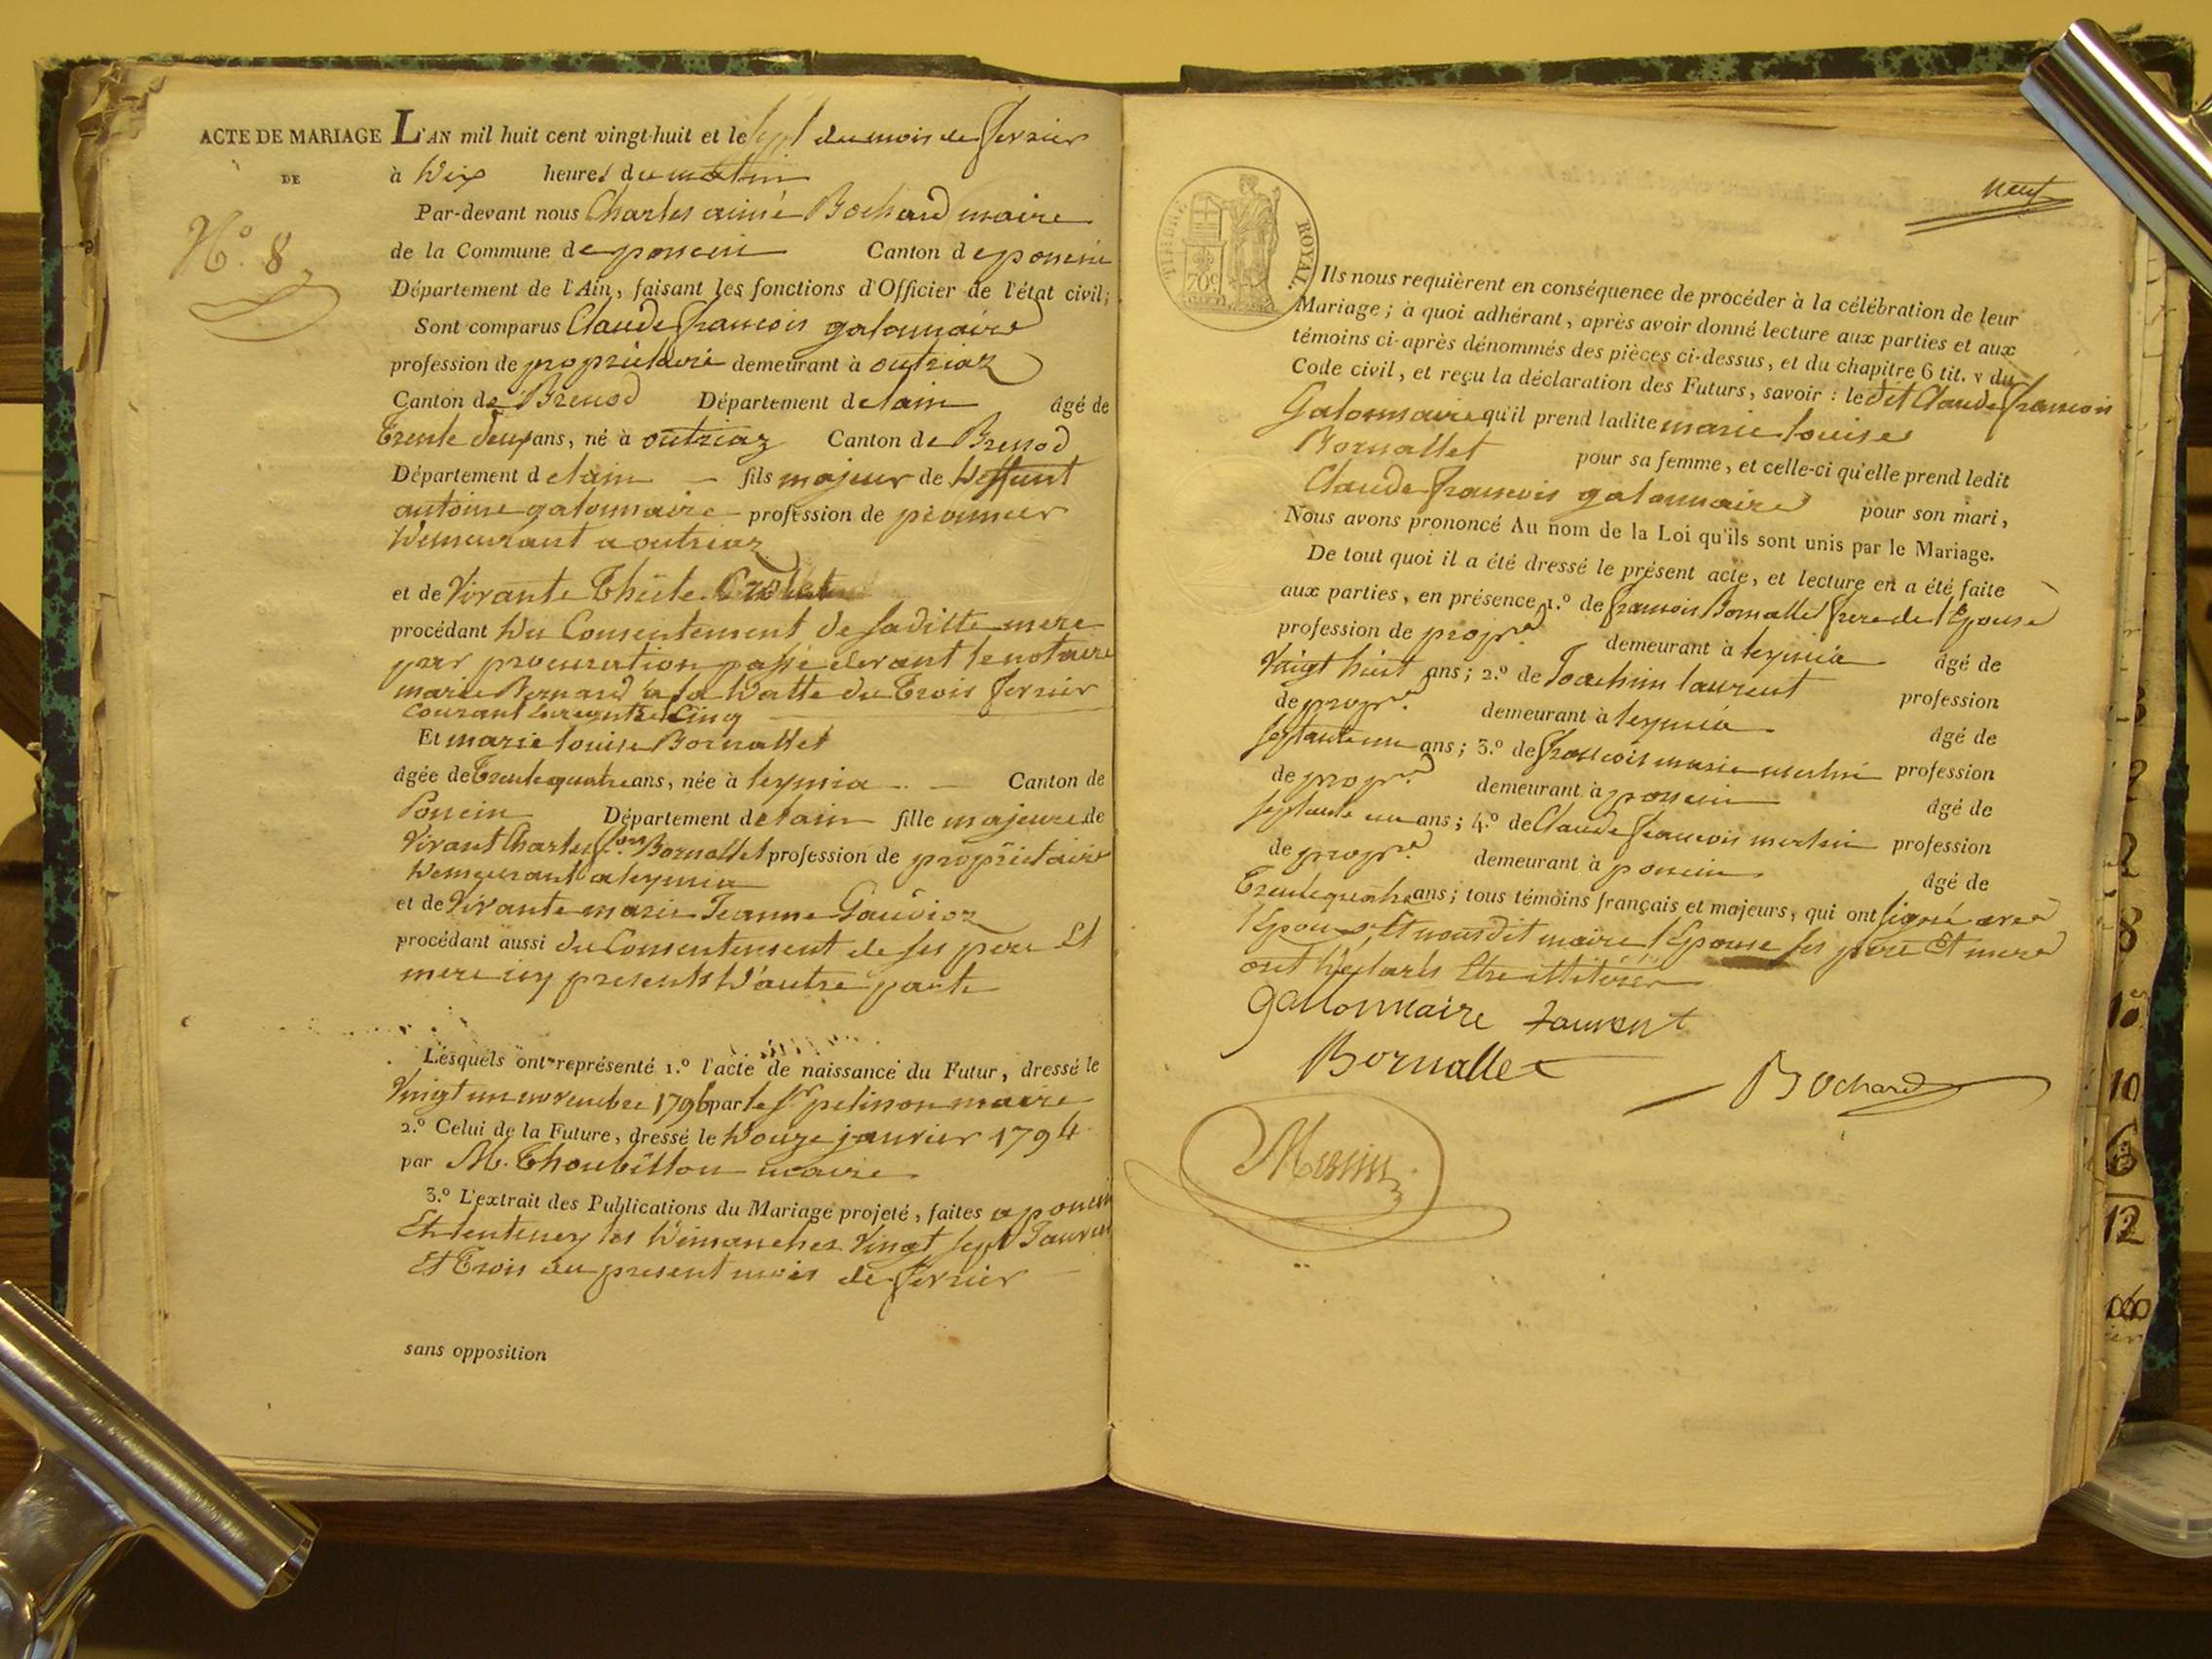 ACTE DE MARIAGE
DE
N.º 8
L'AN mil huit cent vingt-huit et le sept du mois de fevrier
à Dix heures du matin
Par-devant nous Charles aimé Bochard maire
de la Commune de poncin Canton de poncin
Département de l'Ain, faisant les fonctions d'Officier de l'état civil;
Sont comparus Claude francois galonnaire
profession de propriétaire demeurant à outriaz
Canton de Brenod Département de lain âgé de
Trente deux ans, né à outriaz Canton de Brenod
Département de lain fils majeur de Deffunt
antoine galonnaire profession de
Demeurant a outriaz
et de Vivante
procédant Du Consentement de sa ditte mere
par procuration passé devant le notaire
marie Bernard a la Datte du Trois fevrier
courant Cinq
Et marie louise Bornallet
âgée de Trente quatre ans, née à leymia Canton de
Poncin Département de lain fille majeure de
Vivant Charles f.ois Bornallet profession de propriétaire
Demeurant a leymia
et de Vivante marie Jeanne Gaudioz
procédant aussi du Consentement de ses pere Et
mere icy presents D'autre parte
Lesquels ont représenté 1.º l'acte de naissance du Futur, dressé le
Vingt un novembre 1796 par le Sr pelisson maire
2.º Celui de la Future, dressé le Douze janvier 1794
par M. Thoubillon maire
3.º L'extrait des Publications du Mariage projeté, faites a poncin
Et lenteney les Dimanches Vingt sept Janvier
Et Trois du present mois de fevrier
sans opposition
neuf
TIMBRE ROYAL.
70c
Ils nous requièrent en conséquence de procéder à la célébration de leur
Mariage; à quoi adhérant, après avoir donné lecture aux parties et aux
témoins ci-après dénommés des pièces ci-dessus, et du chapitre 6 tit. v du
Code civil, et reçu la déclaration des Futurs, savoir : le dit Claude francois
Galonnaire qu'il prend ladite marie louise
Bornallet pour sa femme, et celle-ci qu'elle prend ledit
Claude francois galonnaire pour son mari,
Nous avons prononcé Au nom de la Loi qu'ils sont unis par le Mariage.
De tout quoi il a été dressé le présent acte, et lecture en a été faite
aux parties, en présence 1.º de francois Bornallet frere de l'Epouse
profession de propre demeurant à leymia âgé de
Vingt huit ans; 2.º de Joachim laurent profession
de propre demeurant à leymia âgé de
septante un ans; 3.º de francois marie merlin profession
de propre demeurant à poncin âgé de
septante un ans; 4.º de Claude francois merlin profession
de propre demeurant à poncin âgé de
Trente quatre ans; tous témoins français et majeurs, qui ont signé avec
l'Epoux Et nous dit maire l'Epouse ses pere Et mere
ont Déclarés Etre illiterer
gallonnaire Laurent
Bornallet
Bochard
Merlin
8
10
10
6
12